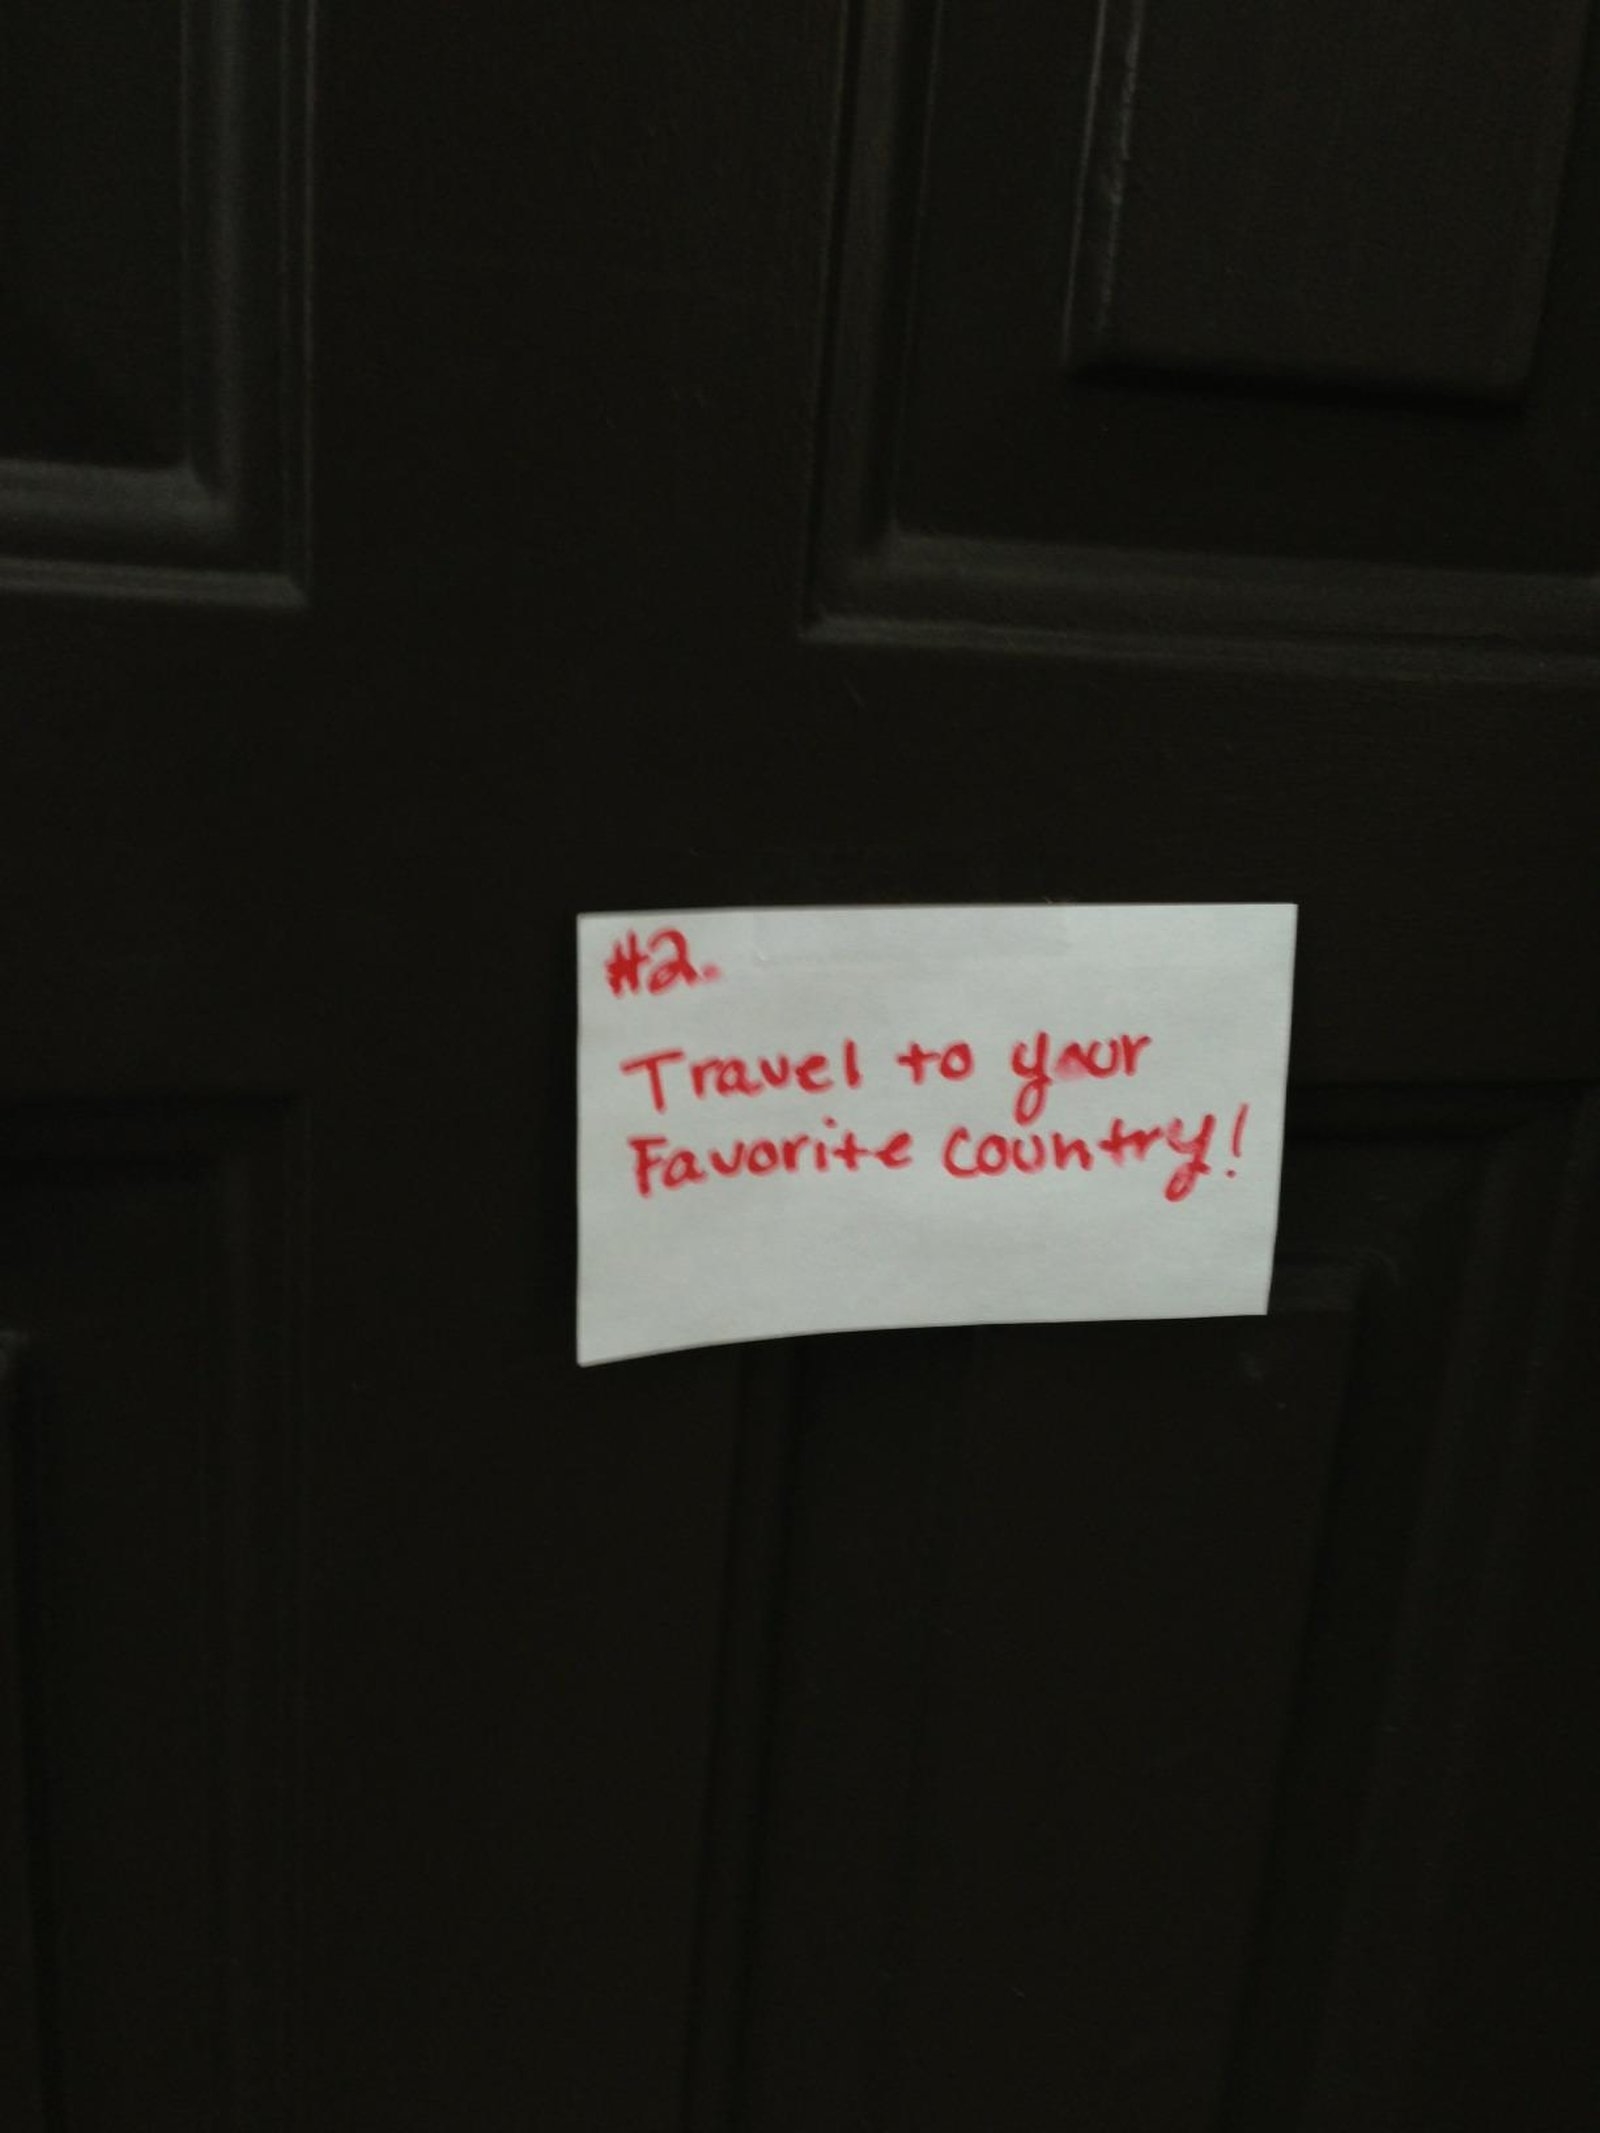 #2.
Travel to your
Favorite country!